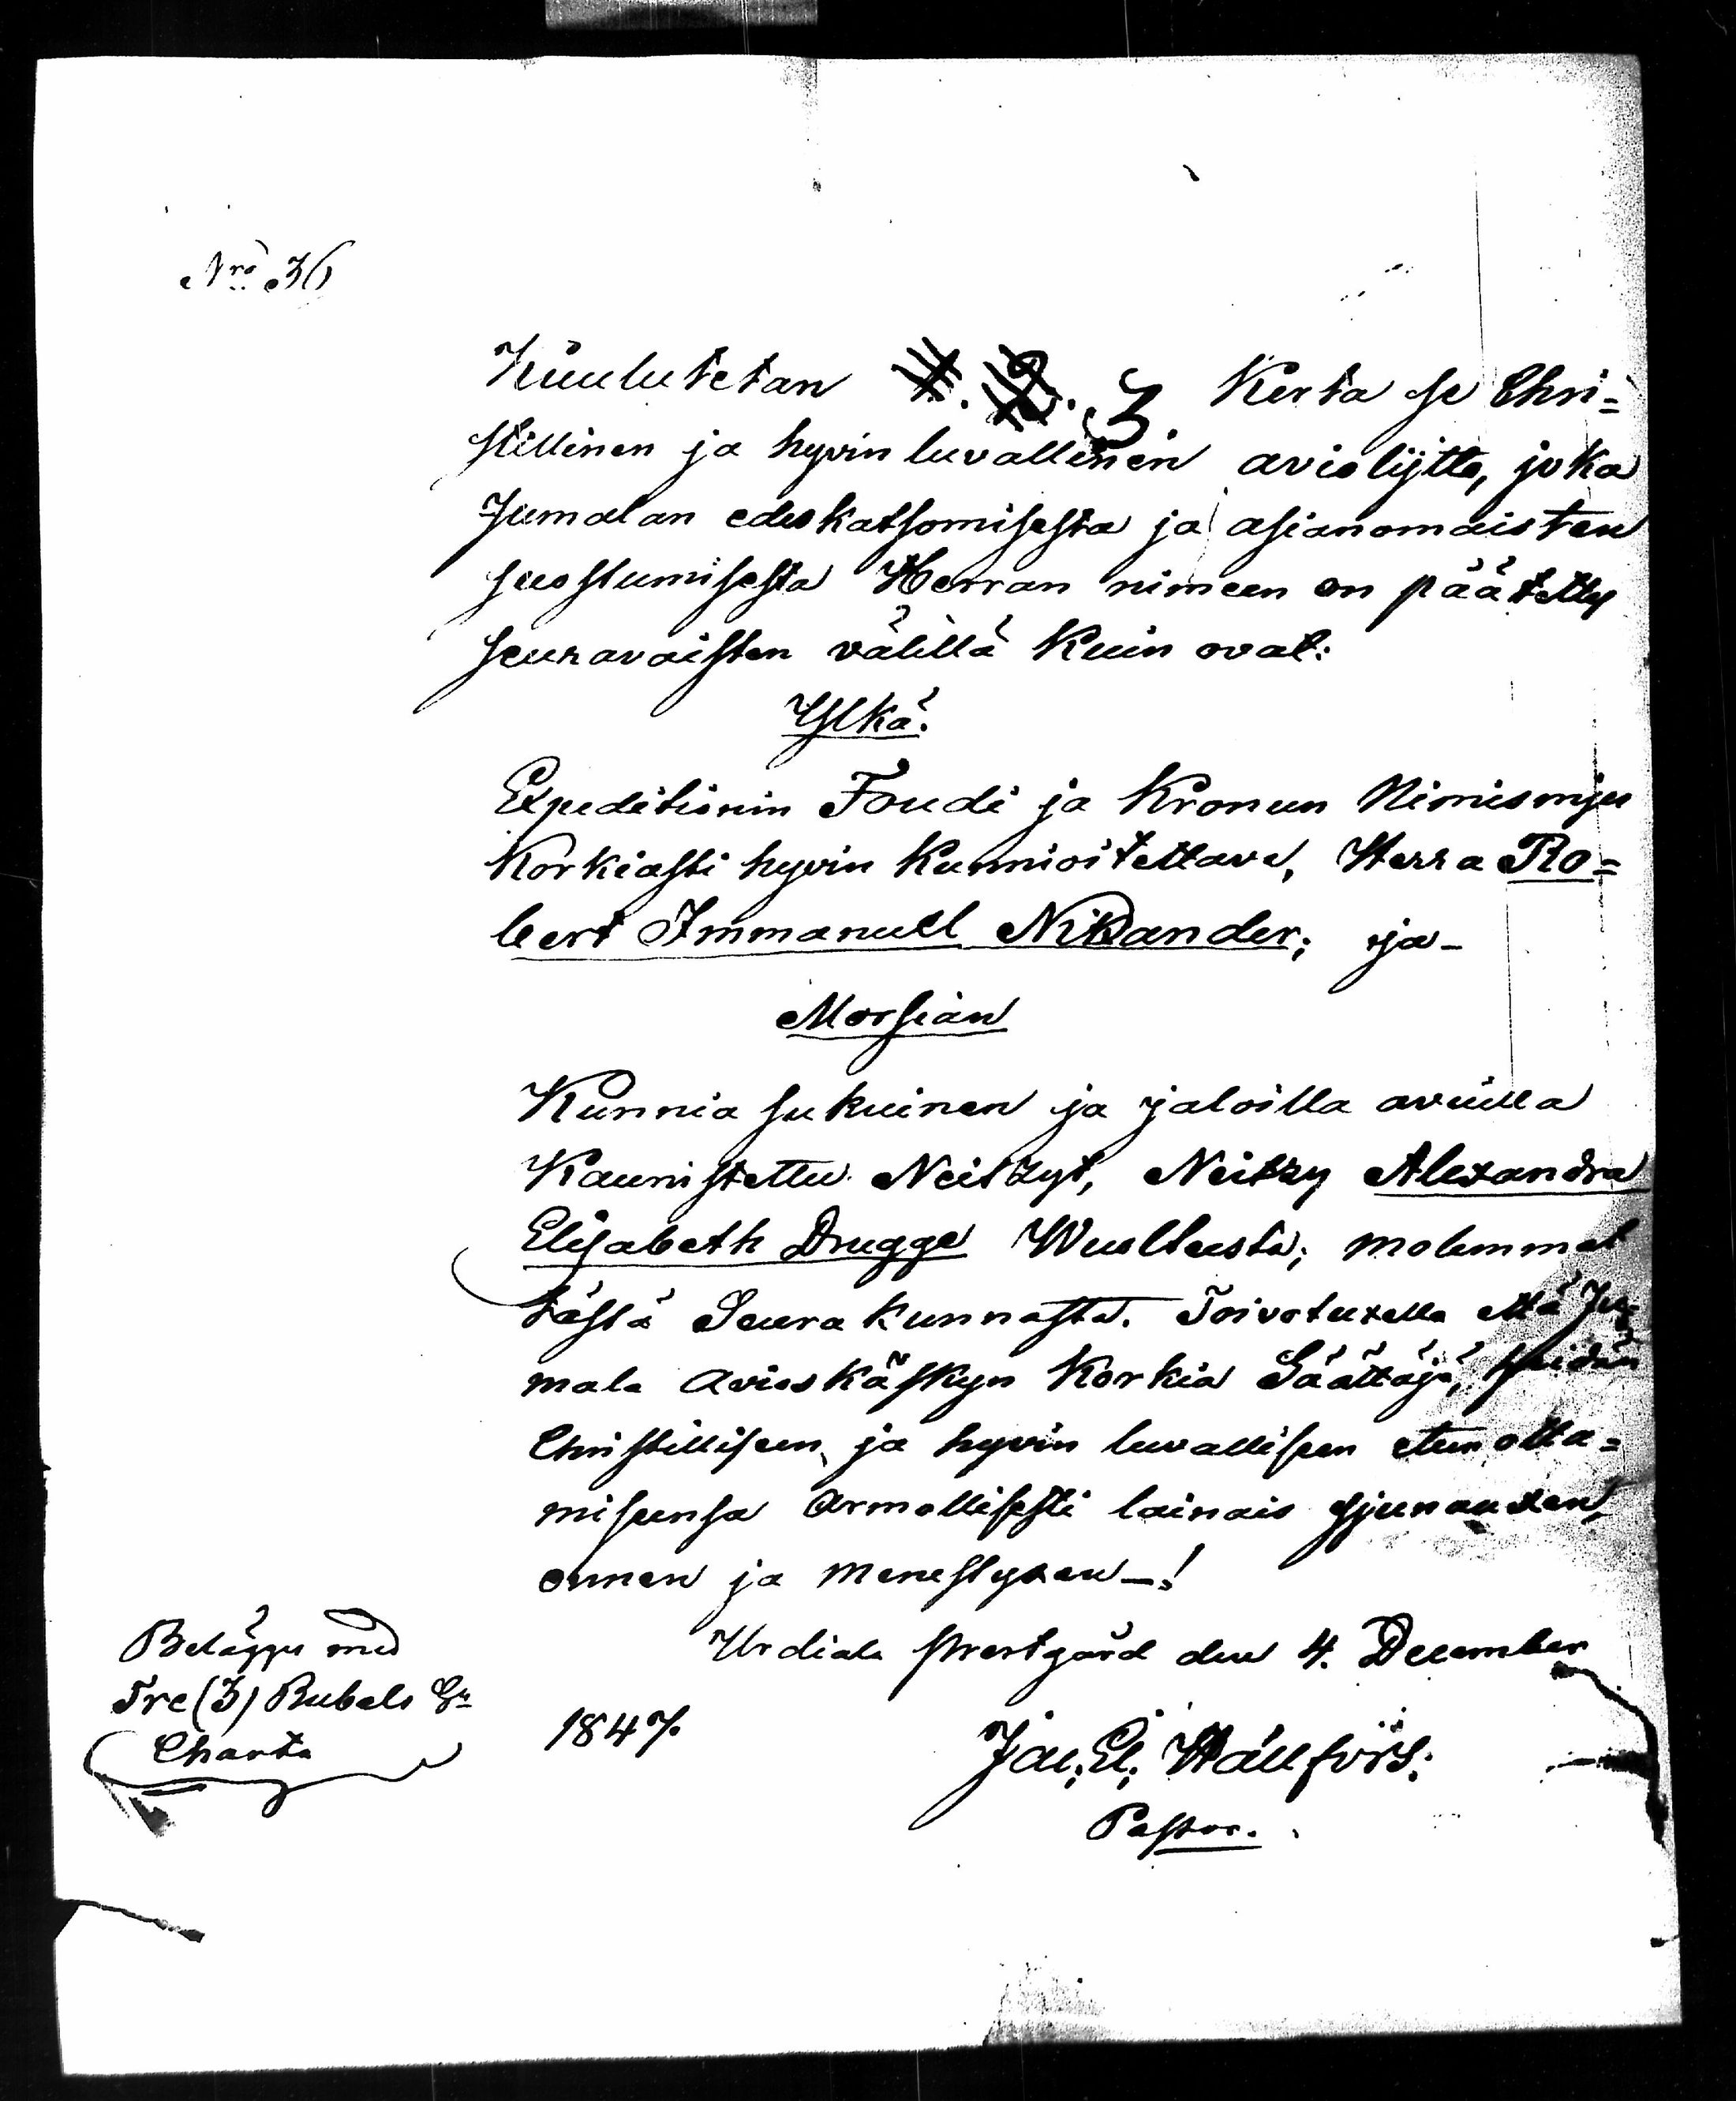 Nro 36
Kuulutetan 1. 2. 3. Kerta se Chri=
stillinen ja hyvin luvallinen aviolijtto, joka
Jumalan edeskatsomisesta ja asianomaisten
suostumisesta Herran nimeen on päätetty
seuravaisten välillä Kuin ovat:
Ylkä.
Expeditionin Foudi ja Kronun Nimismjes
Korkiasti hyvin Kunnioitettava, Herra Ro=
bert Immanuel Nikander; ja-
Morsian
Kunnia sukuinen ja jaloilla avuilla
Kaunistettu Neitzyt, Neitzy Alexandra
Elisabeth Drugge Wualtusta; molemmat
tässä Seurakunnasta. Toivotuxella että Ju=
mala Avioskäskyn Korkia Säättäjä, heidän
Christillisen ja hyvin luvallisen etenotta=
misensa Armollisesti lainais sjunauxen,
onnen ja menestyxen-!
Urdiala Prestgård den 4. December
1847.
Jac. El. Wállfors.
Pastor.
Belägges med
Tre (3) Rubels Sr
Charta